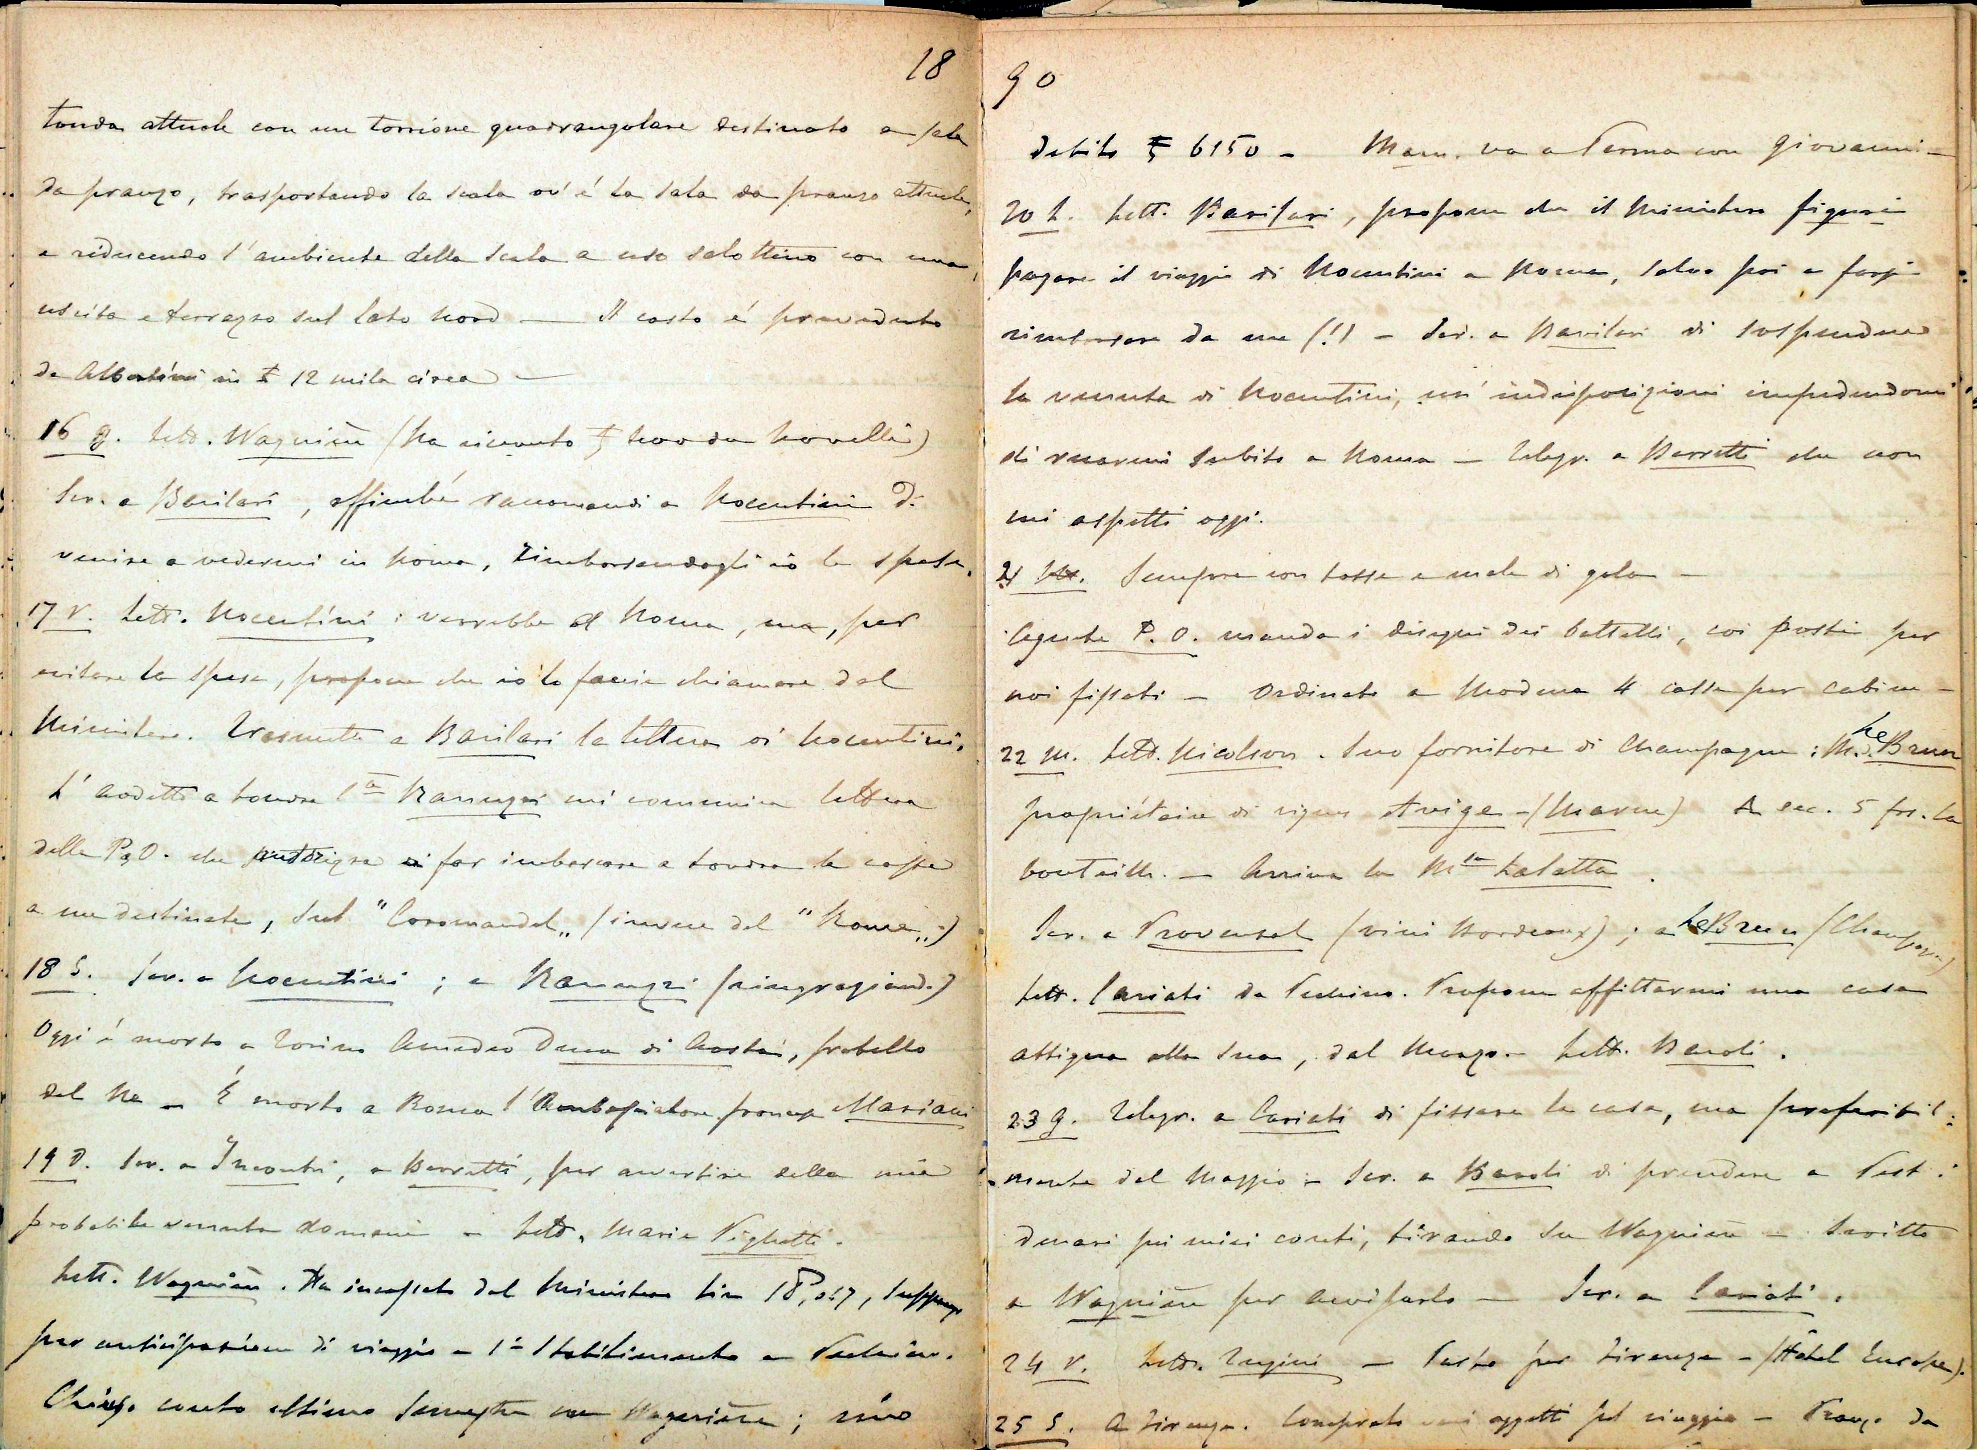 18
tonda attuale con un torrione quadrangolare destinato a sala
da pranzo, trasportando la scala ov'è la sala da pranzo attuale,
e riducendo l'ambiente della scala a uso salottino con una
uscita e terrazzo sul lato nord — Il costo è preveduto
da Albertini in £ 12 mila circa —
16 g. Lett. Wagnière (ha ricevuto £ da Novelli)
Scr. a Barilari, affinché raccomandi a Nocentini di
venire a vedermi in Roma, rimborsandogli io le spese.
17 V. Lett. Nocentini: verrebbe a Roma, ma, per
evitare la spesa, propone che io lo faccia chiamare dal
Ministero. Trasmetto a Barilari la lettera di Nocentini.
L'addetto a Londra Ranuzzi mi comunica lettera
della P. & O. che autorizza a far imbarcare a Londra le casse
a me destinate, sul "Coromandel" (invece del "Rome")
18 S. Scr. a Nocentini; a Ranuzzi (ringraziand.)
Oggi è morto a Torino Amedeo Duca di Aosta, fratello
del Re — È morto a Roma l'Ambasciatore francese Mariani
19 D. Scr. a Incontri, a Berretti, per avvertire della mia
probabile venuta domani — Lett. Maria Vighetti.
Lett. Wagnière. Ha incassato dal Ministero lire 18,017, suppongo
per anticipazione di viaggio e 1° stabilimento a Pechino.
Chiuso conto ultimo semestre con Wagnière; mio
90
debito £ 6150 — Mam. va a Parma con Giovanni —
20 L. Lett. Barilari, propone che il Ministero figuri
pagare il viaggio di Nocentini a Roma, salvo poi a farsi
rimborsare da me (!) — Scr. a Barilari di sospendere
la venuta di Nocentini, mie indisposizioni impedendomi
di recarmi subito a Roma — Telegr. a Berretti che non
mi aspetti oggi.
21 M. Sempre con tosse e male di gola —
L'agente P. O. manda i disegni dei battelli, coi posti per
noi fissati — Ordinate a Modena 4 casse per cabine —
22 M. Lett. Nicolson. Suo fornitore di Champagne: M. Le Brun
propriétaire di vignes Avize — (Marne) A sec. 5 frs. la
bouteille. — Arriva la Mse Lalatta.
Scr. a Provensal (vini Bordeaux); a Le Brun (Champagne)
Lett. Cariati da Pechino. Propone affittarmi una casa
attigua alla sua, dal Marzo — Lett. Baroli.
23 g. Telegr. a Cariati di fissare la casa, ma preferibil:
mente dal Maggio — Scr. a Baroli di prendere a Pest:
denari pei miei conti, tirando su Wagnière — Scritto
a Wagnière per avvisarlo — Scr. a Cariati.
24 V. Lett. Tugini — Parto per Firenze — (Hôtel Europe).
25 S. A Firenze. Comprato vari oggetti pel viaggio — Pranzo da